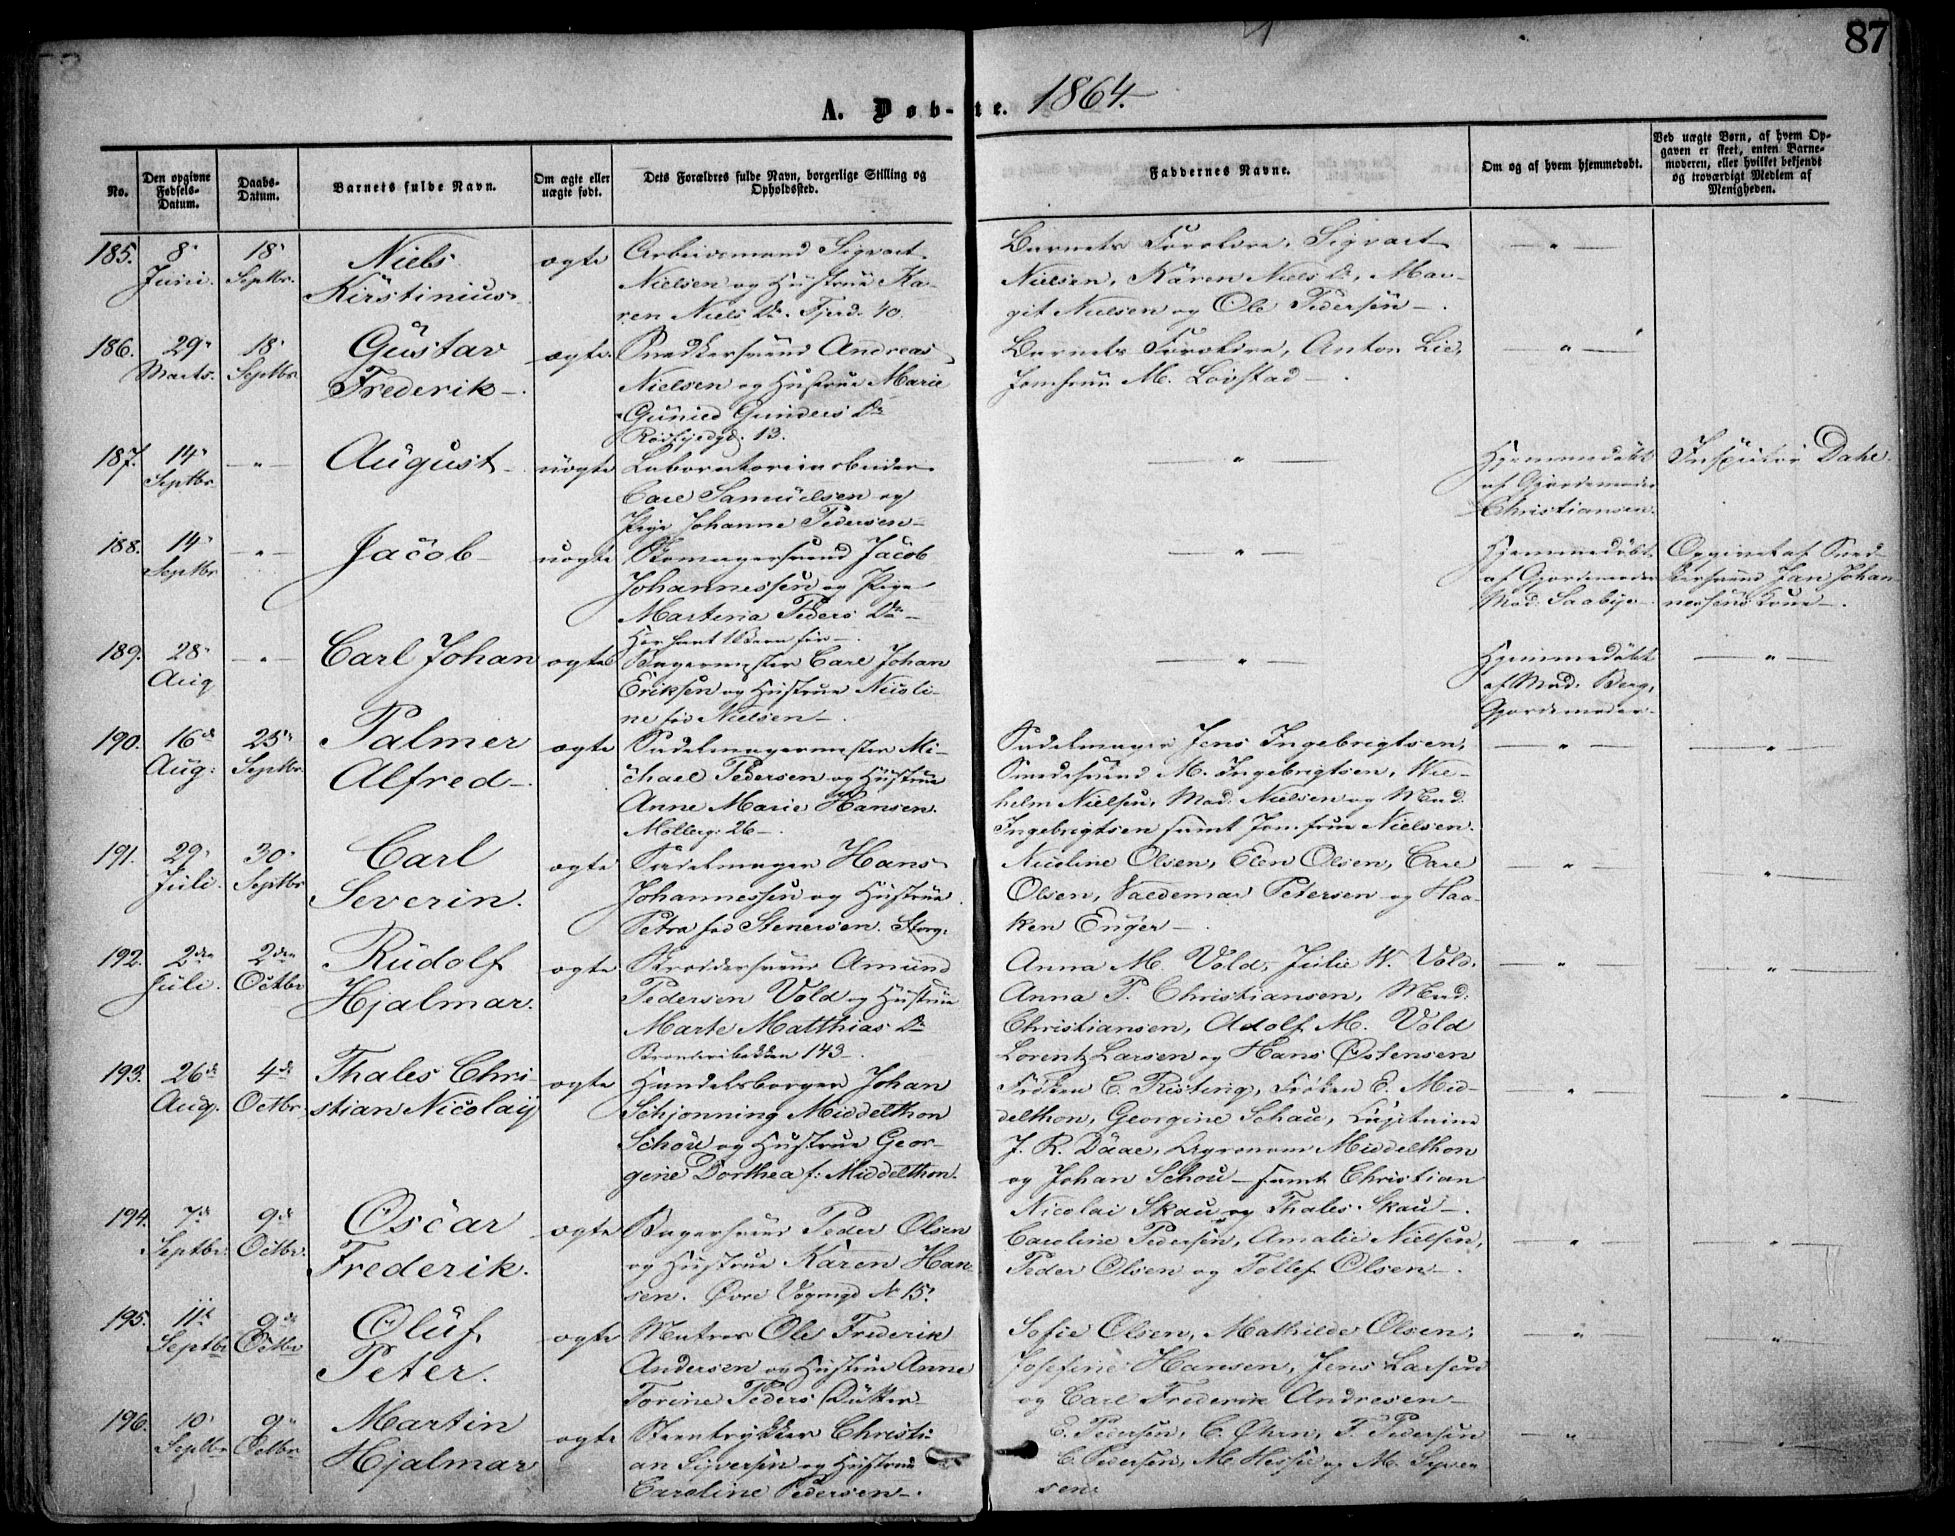 87
A. Døb-te. 1864.
No.
Den opgivne Fødsels-Datum.
Daabs-Datum.
Barnets fulde Navn.
Om ægte eller uægte født.
Dets Forældres fulde Navn, borgerlige Stilling og Opholdssted.
Faddernes Navne.
Om og af hvem hjemmedøbt.
Ved uægte Børn, af hvem Opgaven er skeet, enten Barnemoderen, eller hvilket bekjendt og troværdigt Medlem af Menigheden.
185. 8 Juni. 18 Septbr. Niels Kirstinius. ægte
Arbeidsmand Sigvart
Nielsen og Hustrue Ka-
ren Niels Dr. Fjerd. 40.
Barnets Forældre, Sigvart
Nielsen, Karen Niels Dr, Mar-
git Nielsen og Ole Pedersen
186. 29 Marts. 18 Septbr Gustav Frederik ægte
Snedkersvend Andreas
Nielsen og Hustrue Marie
Gunild Gunders Dr
13.
Barnets Forældre, Anton Lie,
Jomfrue M. Lövstad
187. 14 Septbr - " - August uægte
Laboratoriearbeider
Carl Samuelsen og
Pige Johanne Pedersen
- " -
Hjemmedöbt
af Gjordemoder
Christiansen.
Inspectör Dahl.
188. 14 Septbr - " - Jacob uægte
Skomagersvend Jacob
Johannessen og Pige
Martinia Peders Dr
- " -
Hjemmedöbt
af Gjordemoder
Mad. Saabye
Opgivet af Sned-
kersvend Jan Johan-
nessens Kone
189. 28 Aug - " - Carl Johan ægte
Bagermester Carl Johan
Eriksen og Hustrue Nicoli-
ne föd Nielsen
- " -
Hjemmedöbt
af Mad. Berg,
Gjordemoder
- " -
190. 16de Aug: 25 Septbr. Palmer Alfred ægte
Sadelmagermester Mi-
chael Pedersen og Hustrue
Anne Marie Hansen.
Möllerg: 26
Sadelmager Jens Ingebrigtsen,
Smedesvend M. Ingebrigtsen, Wil-
helm Nielsen, Mad. Nielsen og Mad.
Ingebrigtsen samt Jomfrue Nielsen.
- " -
- " -
191. 29 Juli. 30 Septbr Carl Severin. ægte
Sadelmager Hans
Johannessen og Hustrue
Petra föd Stenersen. Storg.
Nicoline Olsen, Elen Olsen, Carl
Olsen, Valdemar Petersen og Haa-
ken Enger
- " -
- " -
192. 2den Juli. 2den Octbr Rudolf Hjalmar. ægte
Skræddersvend Amund
Pedersen Vold og Hustrue
Marte Matthias Dr
143
Anna M. Vold, Julie W. Vold,
Anna P. Christiansen, Mad.
Christiansen, Adolf M. Vold
Lorentz Larsen og Hans Östensen
- " -
- " -
193. 26de Aug. 4de Octbr. Thales Chri-stian Nicolaij ægte
Handelsborger Johan
Schjönning Middelthon
Schou og Hustrue Geor-
gine Dorthea f: Middelthon.
Fröken E. Risting, Fröken E. Mid-
delthon, Georgine Schau, Capitaine
J. R. Daae, Agronom Middelthon
og Johan Schou samt Christian
Nicolai Skau og Thales Skau
- " -
- " -
194. 7de Septbr. 9de Octbr. Oscar Frederik. ægte
Bagersvend Peder Olsen
og Hustrue Karen Han-
sen. Övre Vogngd № 15.
Caroline Pedersen, Amalie Nielsen,
Peder Olsen og Tollef Olsen
- " -
- " -
195. 11te Septbr 9de Octbr Oluf Peter. ægte
Matros Ole Frederik
Andersen og Hustrue Anne
Torine Peders Datter
Sofie Olsen, Mathilde Olsen,
Josefine Hansen, Jens Larsen
og Carl Frederik Andresen
- " -
- " -
196. 10 Septbr 9 Octbr Martin Hjalmar ægte
Steentrykker Christi-
an Syversen og Hustrue
Caroline Pedersen
E. Pedersen, C. Öhrn, F. Pedersen
C. Pedersen, M. Hesse og M. Syver-
sen.
- " -